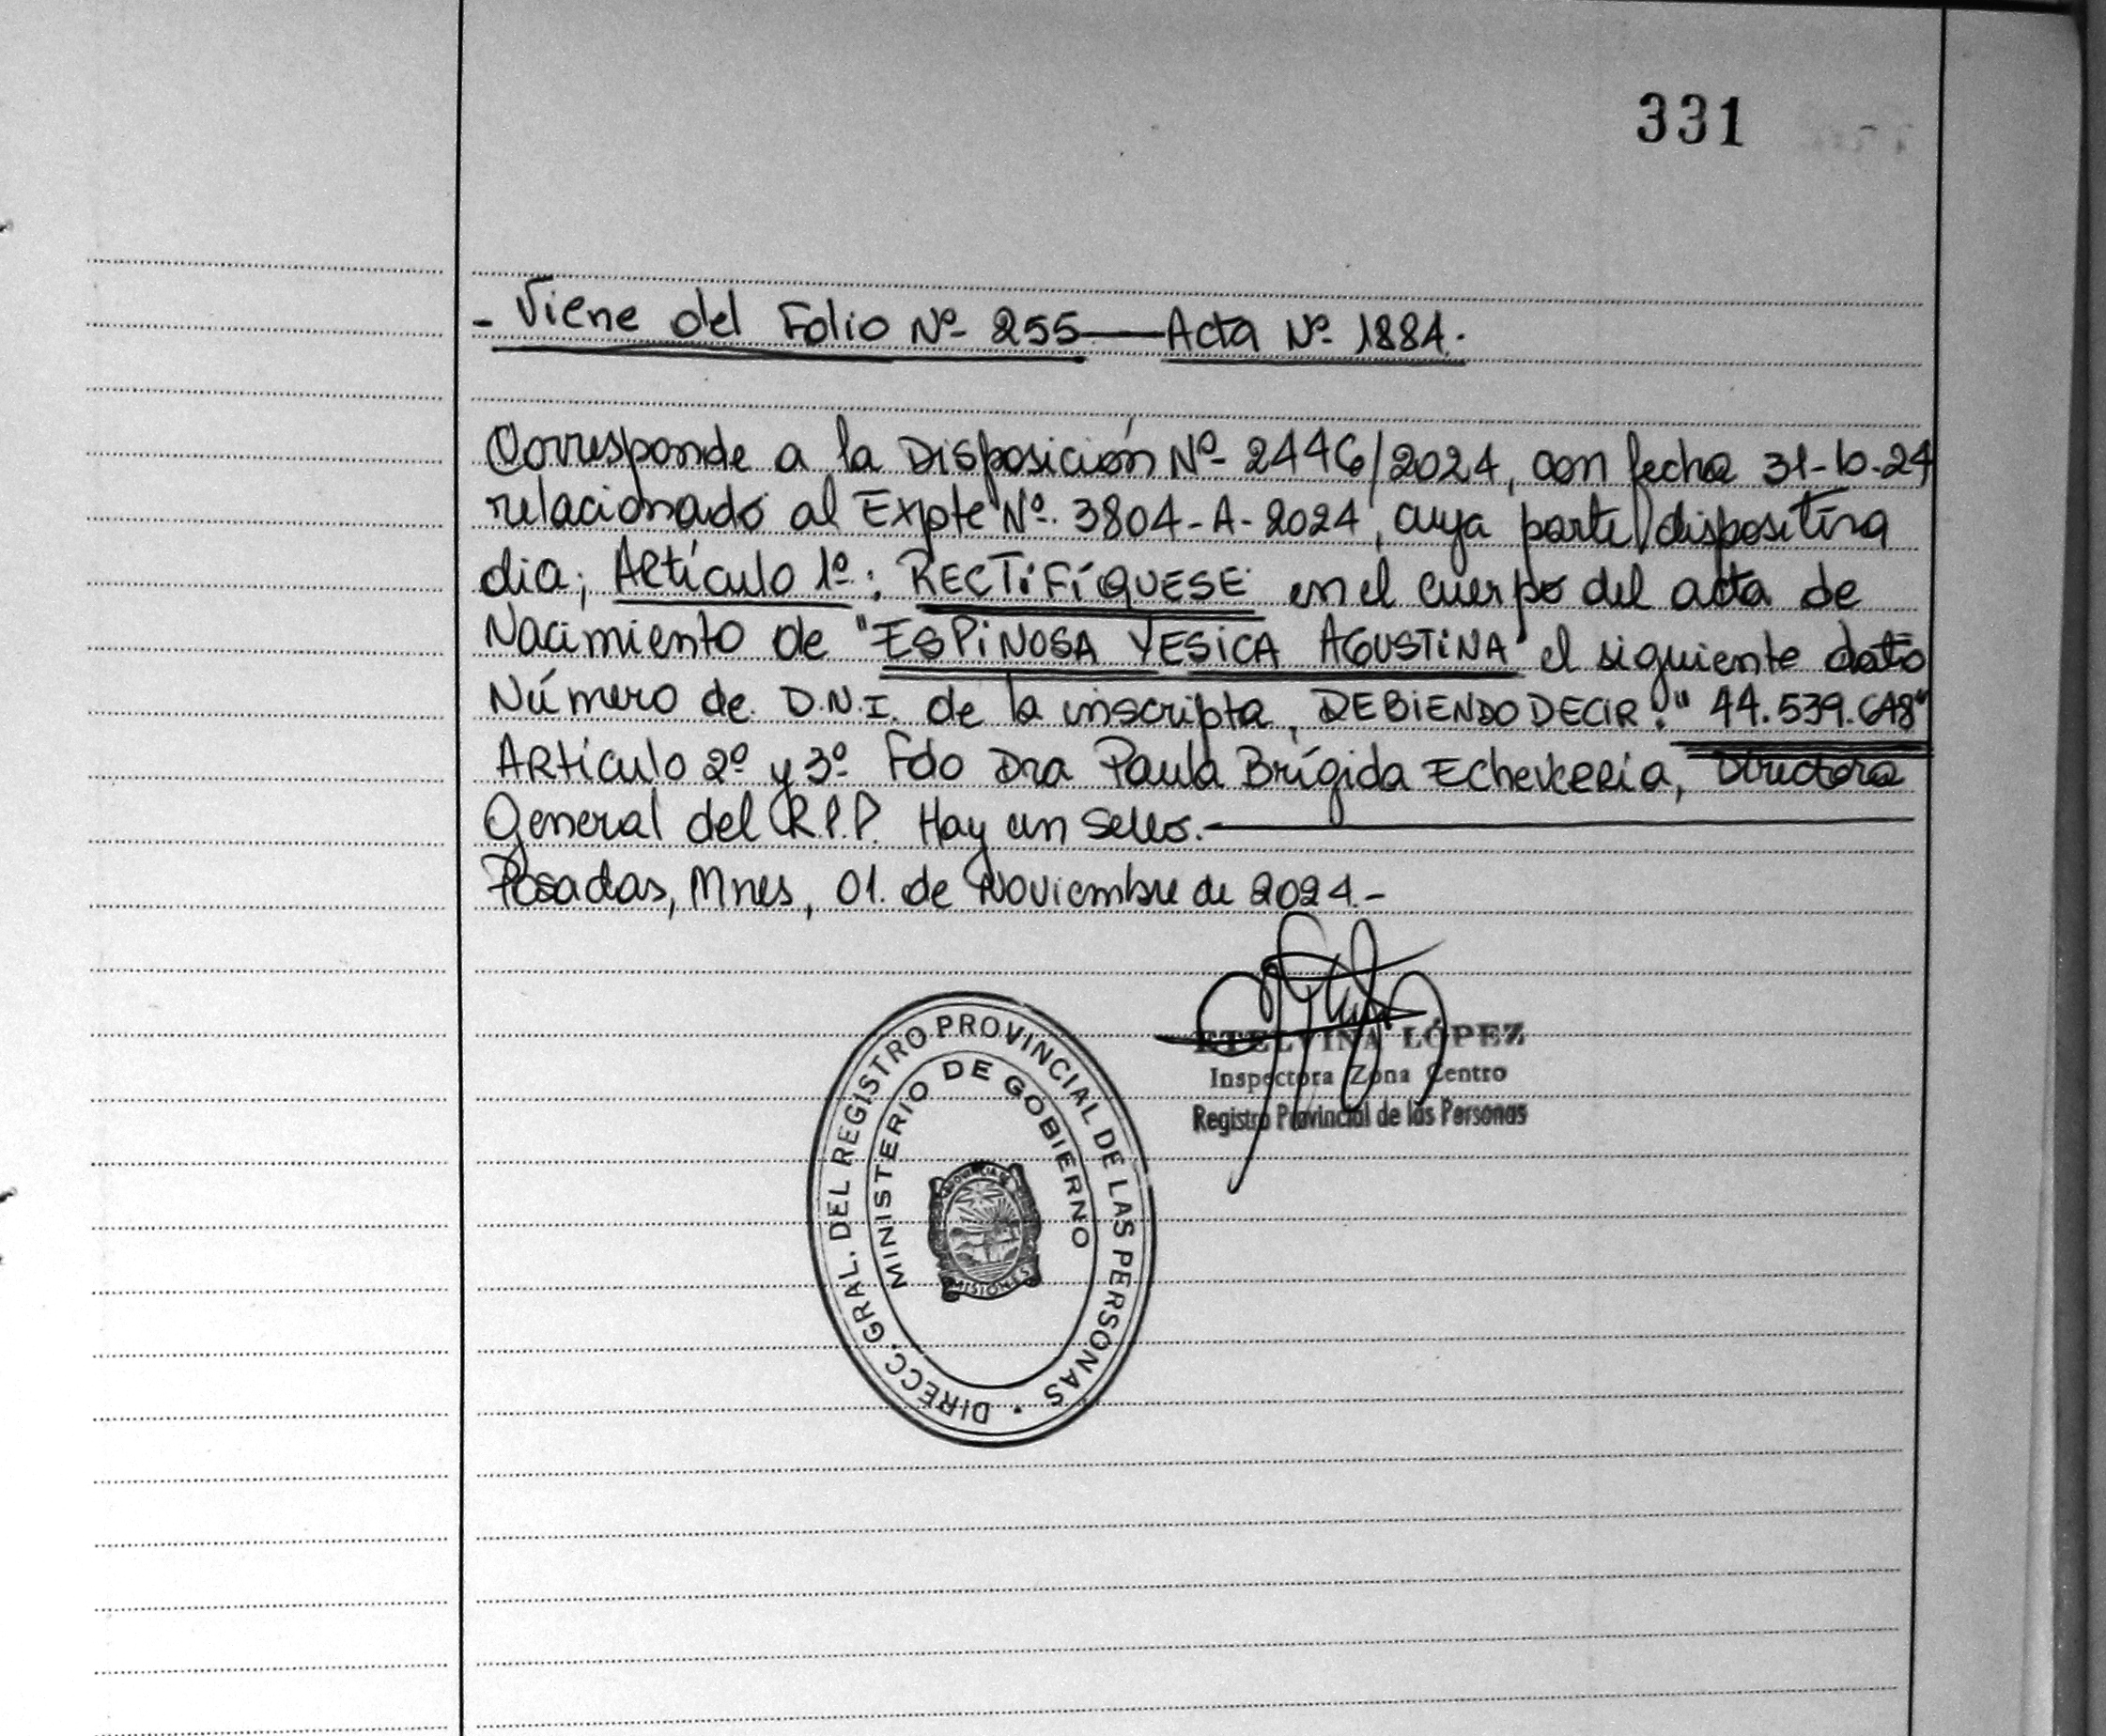 331
- Viene del Folio Nº 255 — Acta Nº 1884.
Corresponde a la Disposición Nº 2446/2024, con fecha 31-10-24
relacionado al Expte Nº. 3804-A-2024, cuya parte dispositiva
dia; Artículo 1º: RECTIFÍQUESE en el cuerpo del acta de
Nacimiento de "ESPINOSA YESICA AGUSTINA" el siguiente dato
Número de D.N.I. de la inscripta, DEBIENDO DECIR: "44.539.648"
Artículo 2º y 3º Fdo Dra Paula Brígida Echeverría, Directora
General del R.P.P. Hay un sello.-
Posadas, Mnes, 01. de Noviembre de 2024.-
ETELVINA LÓPEZ
Inspectora Zona Centro
Registro Provincial de las Personas
DIRECC. GRAL. DEL REGISTRO PROVINCIAL DE LAS PERSONAS
MINISTERIO DE GOBIERNO
MISIONES